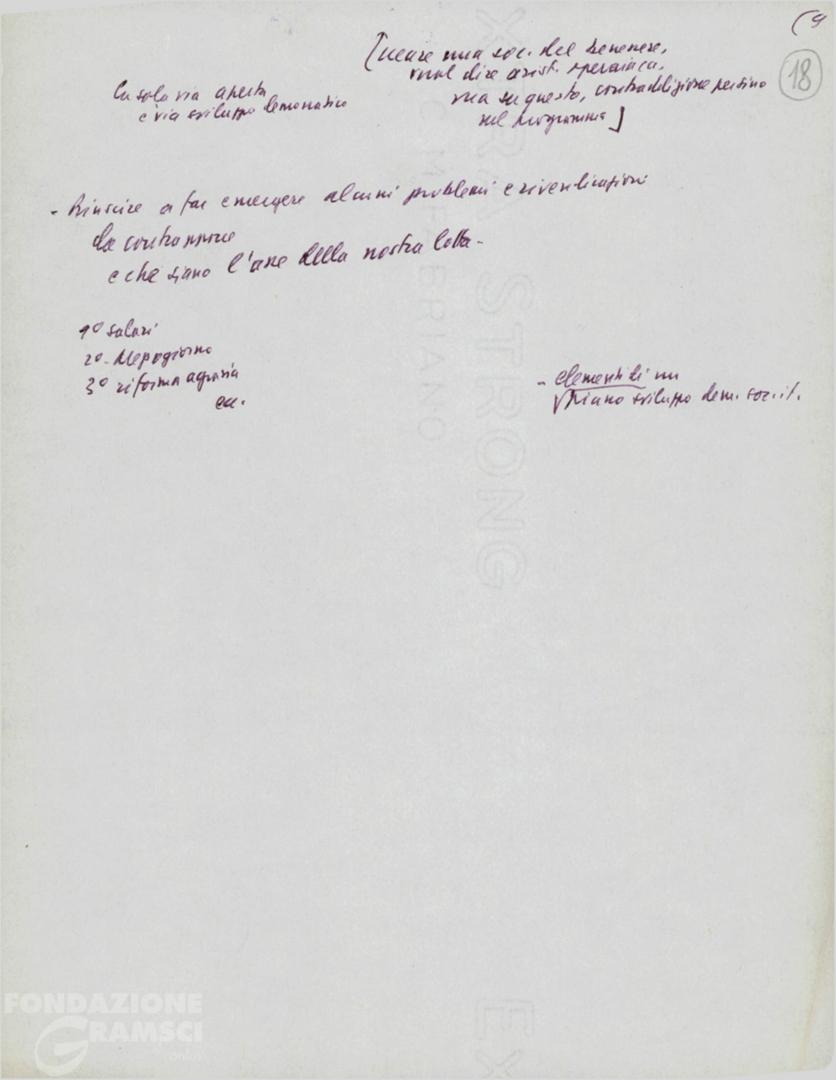 (9
18
[creare una soc. del benessere,
vuol dire arist. operaia ca.
ma su questo, contraddizione persino
nel programma]
la sola via aperta
è via sviluppo democratico
- Riuscire a far emergere alcuni problemi e rivendicazioni
da contrapporre
e che siano l'asse della nostra lotta -
1º salari
2º - Mezzogiorno
3º riforma agraria
ecc.
- elementi di un
piano sviluppo dem. soc. it.
EXTRA STRONG
C. M. FABRIANO
EX
FONDAZIONE
GRAMSCI
online